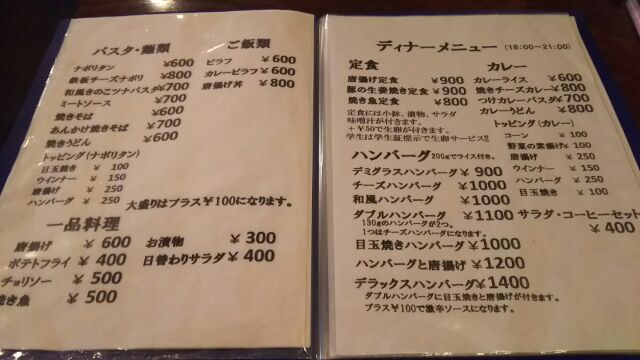 パスタ・麺類
ナポリタン ¥600
鉄板チーズナポリ ¥800
和風きのこツナパスタ ¥700
ミートソース ¥700
焼きそば ¥600
あんかけ焼きそば ¥700
焼きうどん ¥600
トッピング(ナポリタン)
目玉焼き ¥ 100
ウインナー ¥ 150
唐揚げ ¥ 250
ハンバーグ ¥ 250
ご飯類
ピラフ ¥600
カレーピラフ ¥600
唐揚げ丼 ¥ 800
大盛りはプラス¥100になります。
一品料理
唐揚げ ¥ 600
ポテトフライ ¥ 400
チョリソー ¥ 500
焼き魚 ¥ 500
お漬物 ¥ 300
日替わりサラダ ¥ 400
ディナーメニュー (18:00~21:00)
定食
唐揚げ定食 ¥ 900
豚の生姜焼き定食 ¥ 900
焼き魚定食 ¥ 800
定食には小鉢、漬物、サラダ
味噌汁が付きます。
+¥50で生卵が付きます。
学生は学生証提示で生卵サービス!!
カレー
カレーライス ¥ 600
焼きチーズカレー ¥ 800
つけカレーパスタ ¥700
カレーうどん ¥ 800
トッピング(カレー)
コーン ¥ 100
野菜の素揚げ ¥ 100
唐揚げ ¥ 250
ウインナー ¥ 150
ハンバーグ ¥ 250
目玉焼き ¥ 100
ハンバーグ 200gでライス付き。
デミグラスハンバーグ ¥ 900
チーズハンバーグ ¥1000
和風ハンバーグ ¥1000
ダブルハンバーグ ¥1100
130gのハンバーグが2つ。
1つはチーズハンバーグになります。
目玉焼きハンバーグ ¥1000
ハンバーグと唐揚げ ¥1200
デラックスハンバーグ ¥1400
ダブルハンバーグに目玉焼きと唐揚げが付きます。
プラス¥100で激辛ソースになります。
サラダ・コーヒーセット
¥ 400